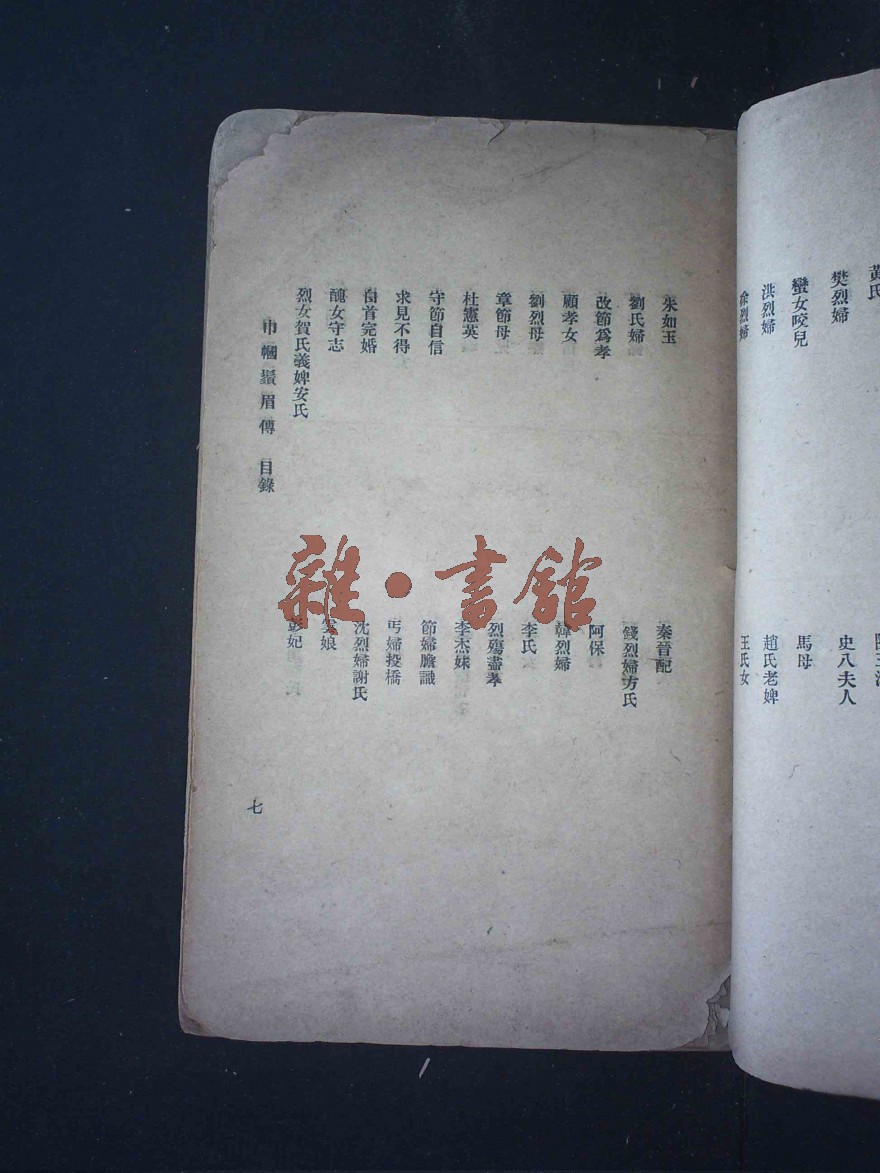 樊烈婦
蠻女咬兒
洪烈婦
徐烈婦
史八夫人
馬母
趙氏老婢
王氏女
朱如玉
劉氏婦
改節爲孝
顧孝女
劉烈母
章節母
杜憲英
守節自信
求見不得
白首完婚
醜女守志
烈女賀氏義婢安氏
秦晉配
錢烈婦方氏
阿保
韓烈婦
李氏
烈殤盡孝
李杰妹
節婦膽識
丐婦投橋
沈烈婦謝氏
娘
彭妃
巾幗鬚眉傳 目錄
七
雜·書館